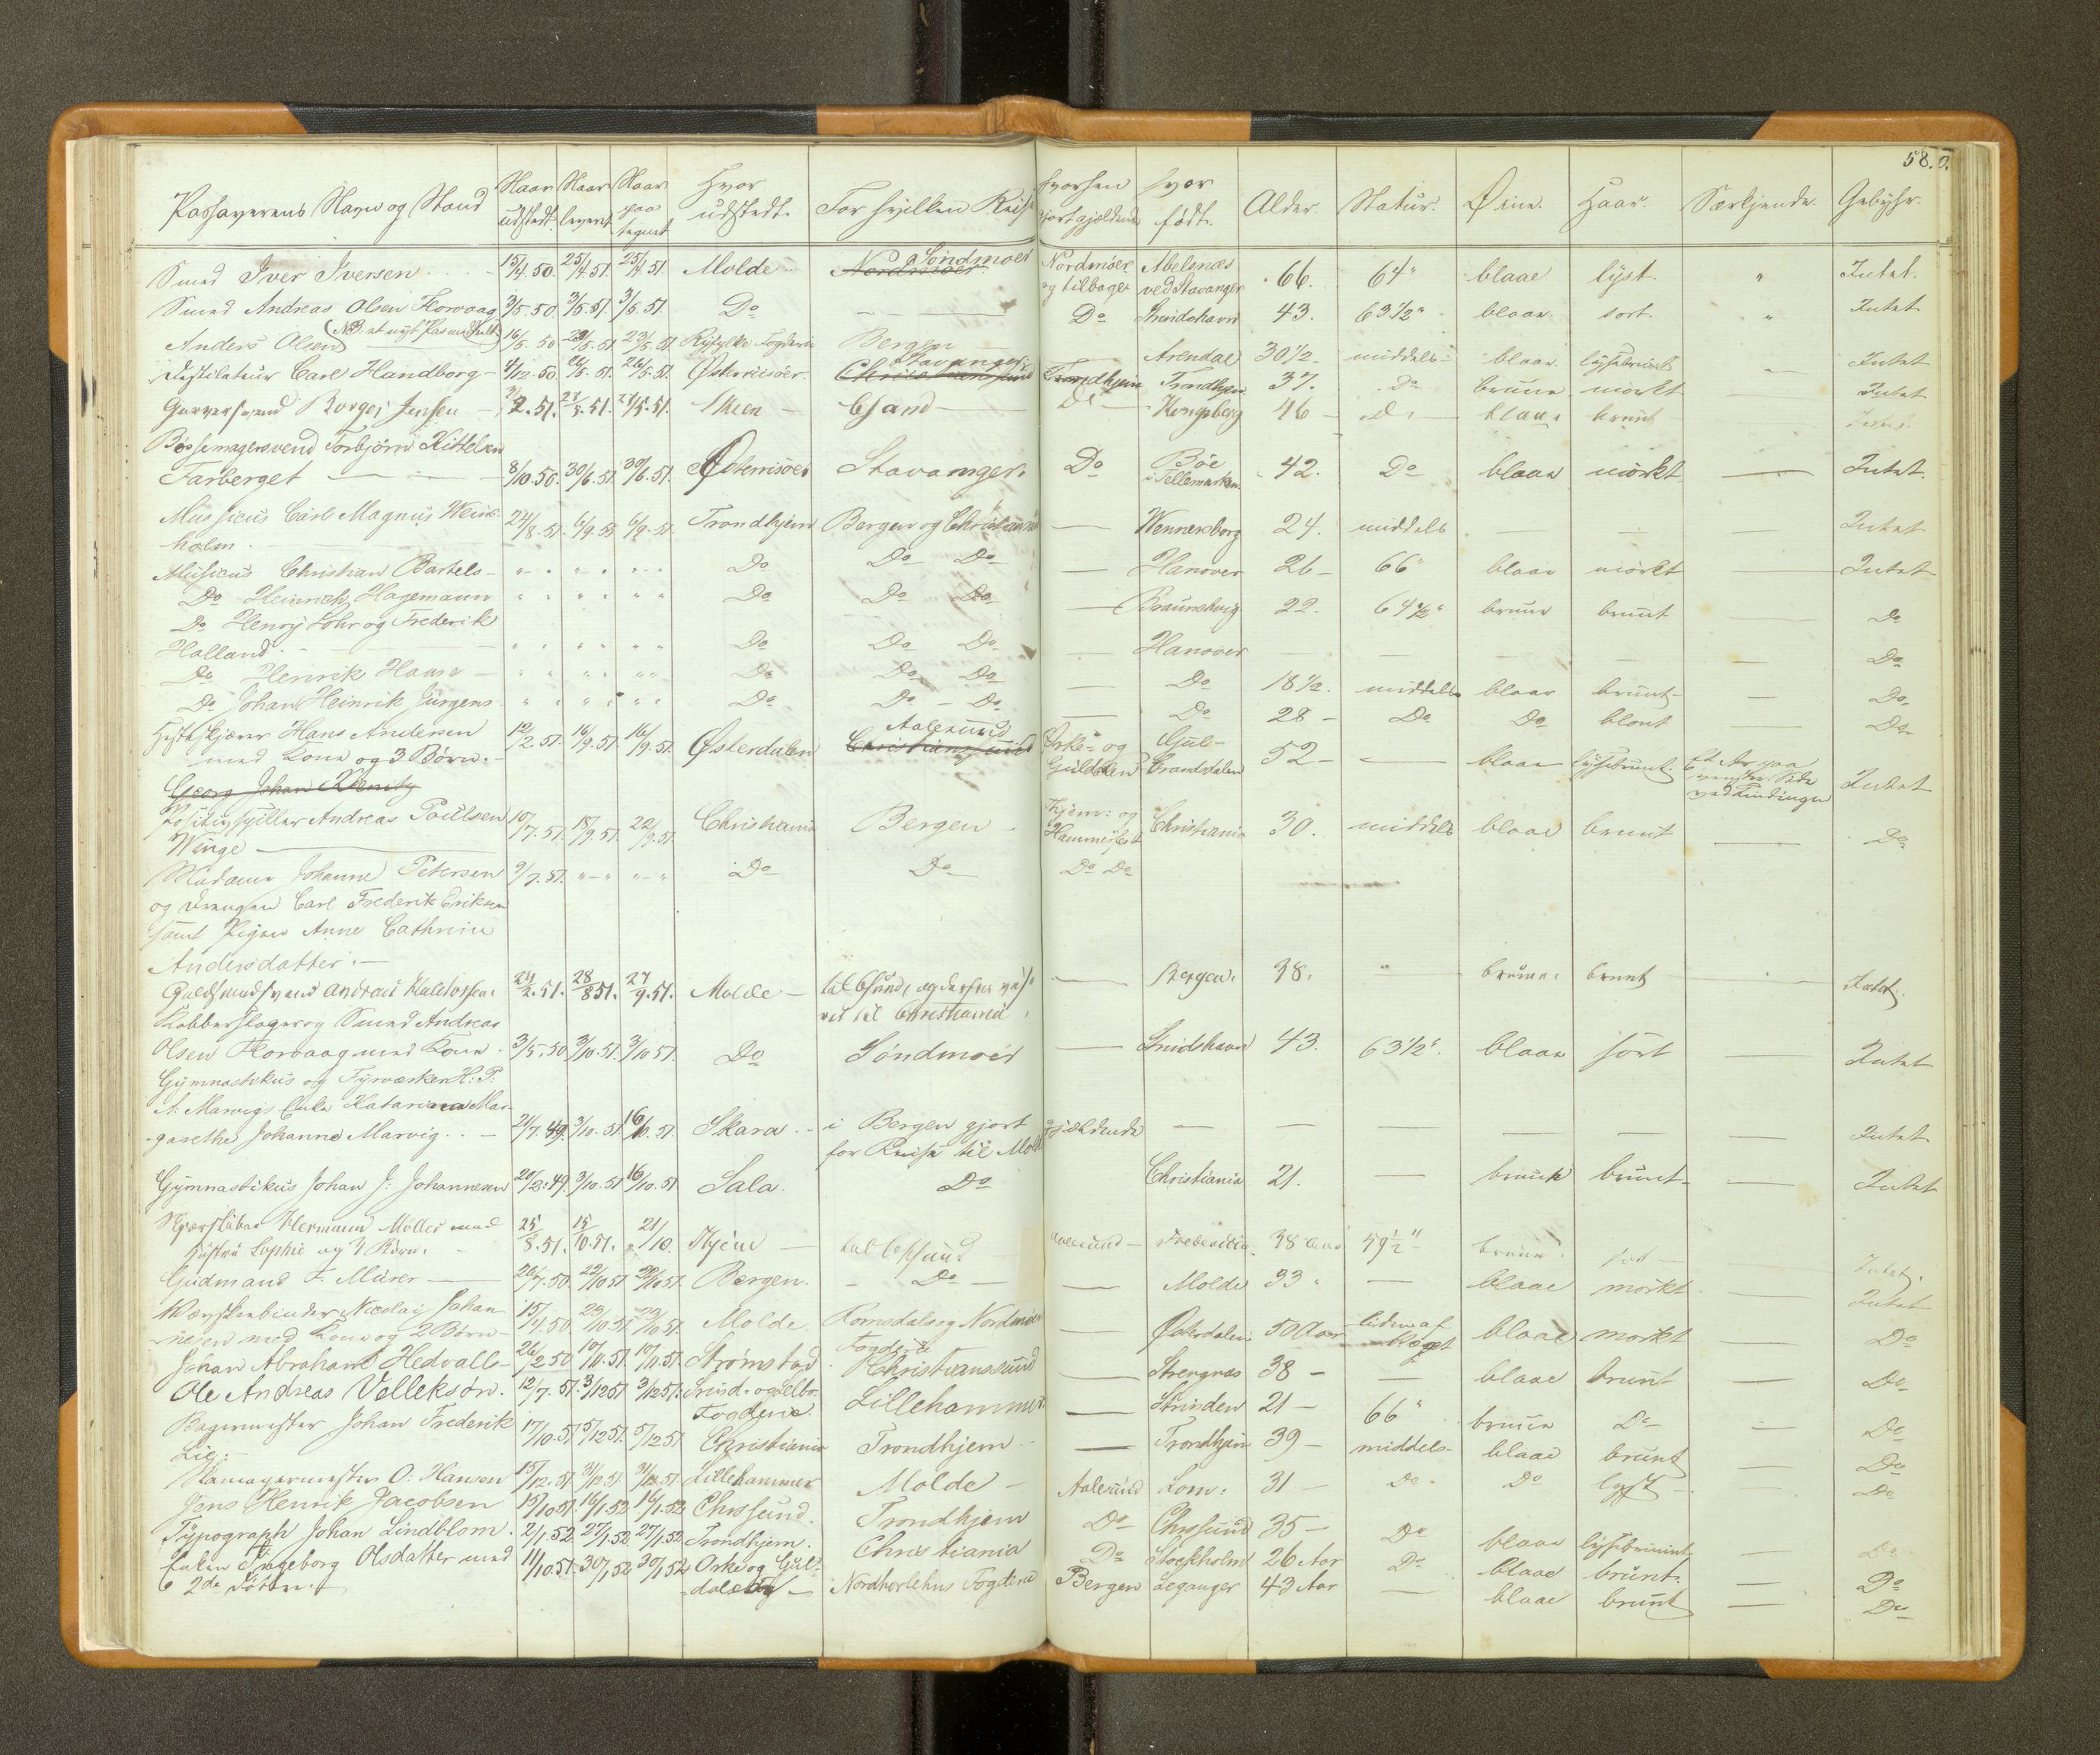 58.
Passaverens Navn og Stand | Naar udstedt. | Naar leveret | Naar paa tegnet | Hvor udstedt. | For hvilken Reise | hvorhen gjort gjældende | hvor født. | Alder. | Statur. | Øine. | Haar. | Særkjende. | Gebyhr.
Smed Iver Iversen | 15/4.50. | 25/4.51. | 25/4.51 | Molde | Nordmøer Søndmøer | Nordmøer og tilbage | Abelsnæs ved Stavanger | 66. | 64" | blaae | lyst. | " | Intet.
Smed Andreas Olsen Horvaag | 3/5.50. | 3/5.51. | 3/5.51. | Do | — | Do | Smidshavn | 43. | 63 1/2" | blaae | sort. | " | Intet
Anders Olsen | 16/5.50 | 23/5.51 | 23/5.51 | Ryfylke Fogderie | Bergen | — | Arendal | 30 1/2 | middels | blaae | lysebrunt | — | Intet
Destilateur Carl Handborg | 4/12.50. | 26/5.51. | 26/5.51. | Østerriisøer. | Christiansund Stavanger | Trondhjem | Trondhjem | 37. | Do | brune | mørkt | — | Intet
Garversvend Borger Jensen | 2.51. | 28/5.51. | 28/5.51. | Skien | CSand | Do | Kongsberg | 46 | Do | blaae | brunt | — | Intet
Bøssemagersvend Torbjørn Kittelsen
Farberget | 8/10.50. | 30/6.51. | 30/6.51. | Østerrisøer | Stavanger. | Do | Bøe i Tellemarken. | 42. | Do | blaae | mørkt | — | Intet.
Mussicus Carl Magnus Wein-
holm. | 24/8.51. | 6/9.51 | 6/9.51. | Trondhjem | Bergen og Christiania | — | Wennersborg | 24. | middels | — | — | — | Intet
Musicus Christian Bartels | " | " | " | Do | Do Do | — | Hanover | 26 | 66" | blaae | mørkt | — | Intet
Do Heinrich Hagemann | " | " | " | Do | Do Do | — | Braunskvig | 22. | 64 1/2" | brune | brunt | — | Do
Do Henry Lohr og Frederik
Holland | " | " | " | Do | Do Do | — | Hanover | — | — | — | — | — | Do
Do Henrik Haase | " | " | " | Do | Do Do | — | Do | 18 1/2. | middels | blaae | brunt | — | Do
Do Johan Heinrik Jürgens | " | " | " | Do | Do Do | — | Do | 28 | Do | Do | blont | — | Do
Hesteskjærer Hans Andersen
med Kone og 3 Børn. | 12/2.51. | 16/9.51. | 16/9.51 | Østerdalen | Christiansund Aalesund | Orke- og Guldalen | Gul- brandsdalen | 52 | — | blaae | lysebrunt. | Et Ar paa venstre Side ved Tindingen | Intet
Georg Johan
Positivspiller Andreas Poulsen
Winge | 10/7.51. | 18/9.51. | 22/9.51. | Christiania | Bergen | Thjem: og Hammerfest | Christiania | 30. | middels | blaae | brunt | — | Do
Madame Johanne Petersen | 9/7.51. | " | " | Do | Do | Do Do
og Drengen Carl Frederik Eriksen
samt Pigen Anne Cathrine
Andersdatter.
Guldsmedsvend Andreas Haldorsen. | 24/2.51. | 28/8 51. | 27/9.51. | Molde | til CSund, og derfra | — | Bergen. | 38. | " | brune | brunt | — | Intet.
til Christiania
Kobberslager og Smed Andreas
Olsen Horvaag med Kone | 3/5.50 | 3/10.51. | 3/10 51. | Do | Søndmøer | — | Smidshavn | 43. | 63 1/2". | blaae | sort | — | Intet
Gymnastikus og Fyrværker H: P:
A: Marvigs Enke Katarina Mar-
garethe Johanne Marvig | 21/7.49. | 3/10.51. | 16/10.51. | Skara | i Bergen gjort | gjældende | — | — | — | — | — | — | Intet
for Reise til Molde
Gymnastikus Johan J: Johannesen | 20/2.49. | 3/10.51 | 16/10.51 | Sala. | Do | Christiania | 21. | — | brune | brunt | — | Intet
Skjærsliber Hermann Møller med
Hustru Sophie og 3 Børn. | 25/8.51. | 15/10.51. | 21/10. | Thjem | til CSund | Aalesund | 38 Aar | 59 1/2" | brune | sort | — | Intet.
Gudmand F. Murer | 26/7.50. | 22/10 51 | 22/10 51. | Bergen. | Do | — | Molde | 33 | — | blaae | mørkt | — | Intet
Væverskeebinder Nicolai Johan-
nesen med Kone og 2 Børn | 15/4.50 | 23/10.51 | 23/10 51. | Molde. | Romsdals og Nordmørs Fogderie | — | Østerdalen | 50 Aar | liden af | blaae | mørkt | — | Do
Johan Abraham Hedvall | 26/2 50 | 10/11.51. | 10/11.51. | Strømstad | Christianssund | — | Strengnæs | 38 | — | blaae | brunt | — | Do
Ole Andreas Velleksøn. | 12/7.51. | 3/12 51 | 3/12 51. | Strind- og Selbo Fogderie. | Lillehammer | — | Strinden | 21 | 66" | brune | Do | — | Do
Bagermester Johan Frederik
Lie | 17/10.51 | 5/12 51. | 5/12 51 | Christiania | Trondhjem | — | Trondhjem | 39 | middels | blaae | brunt | — | Do
Skomagermester O: Hansen | 15/12.51 | 31/12 51 | 31/12.51. | Lillehammer | Molde | Aalesund | Lom. | 31 | Do | Do | lyst | — | Do
Jens Henrik Jacobsen | 15/10 51. | 16/1.52 | 16/1.52 | Chrssund. | Trondhjem | Do | Chrssund | 35 | Do | blaae | lysebrunt | — | Do
Typograph Johan Lindblom. | 2/1.52 | 27/1.52. | 27/1.52 | Trondhjem. | Christiania | Do | Stockholm | 26 Aar | Do | blaae | brunt. | — | Do
Enken Ingeborg Olsdatter med
2de Børn. | 11/10 51. | 30/1 52 | 30/1 52 | Orke og Gul- dalen | Nordhorlehns Fogderie | Bergen | Leganger | 43 Aar | — | blaae | brunt | — | Do